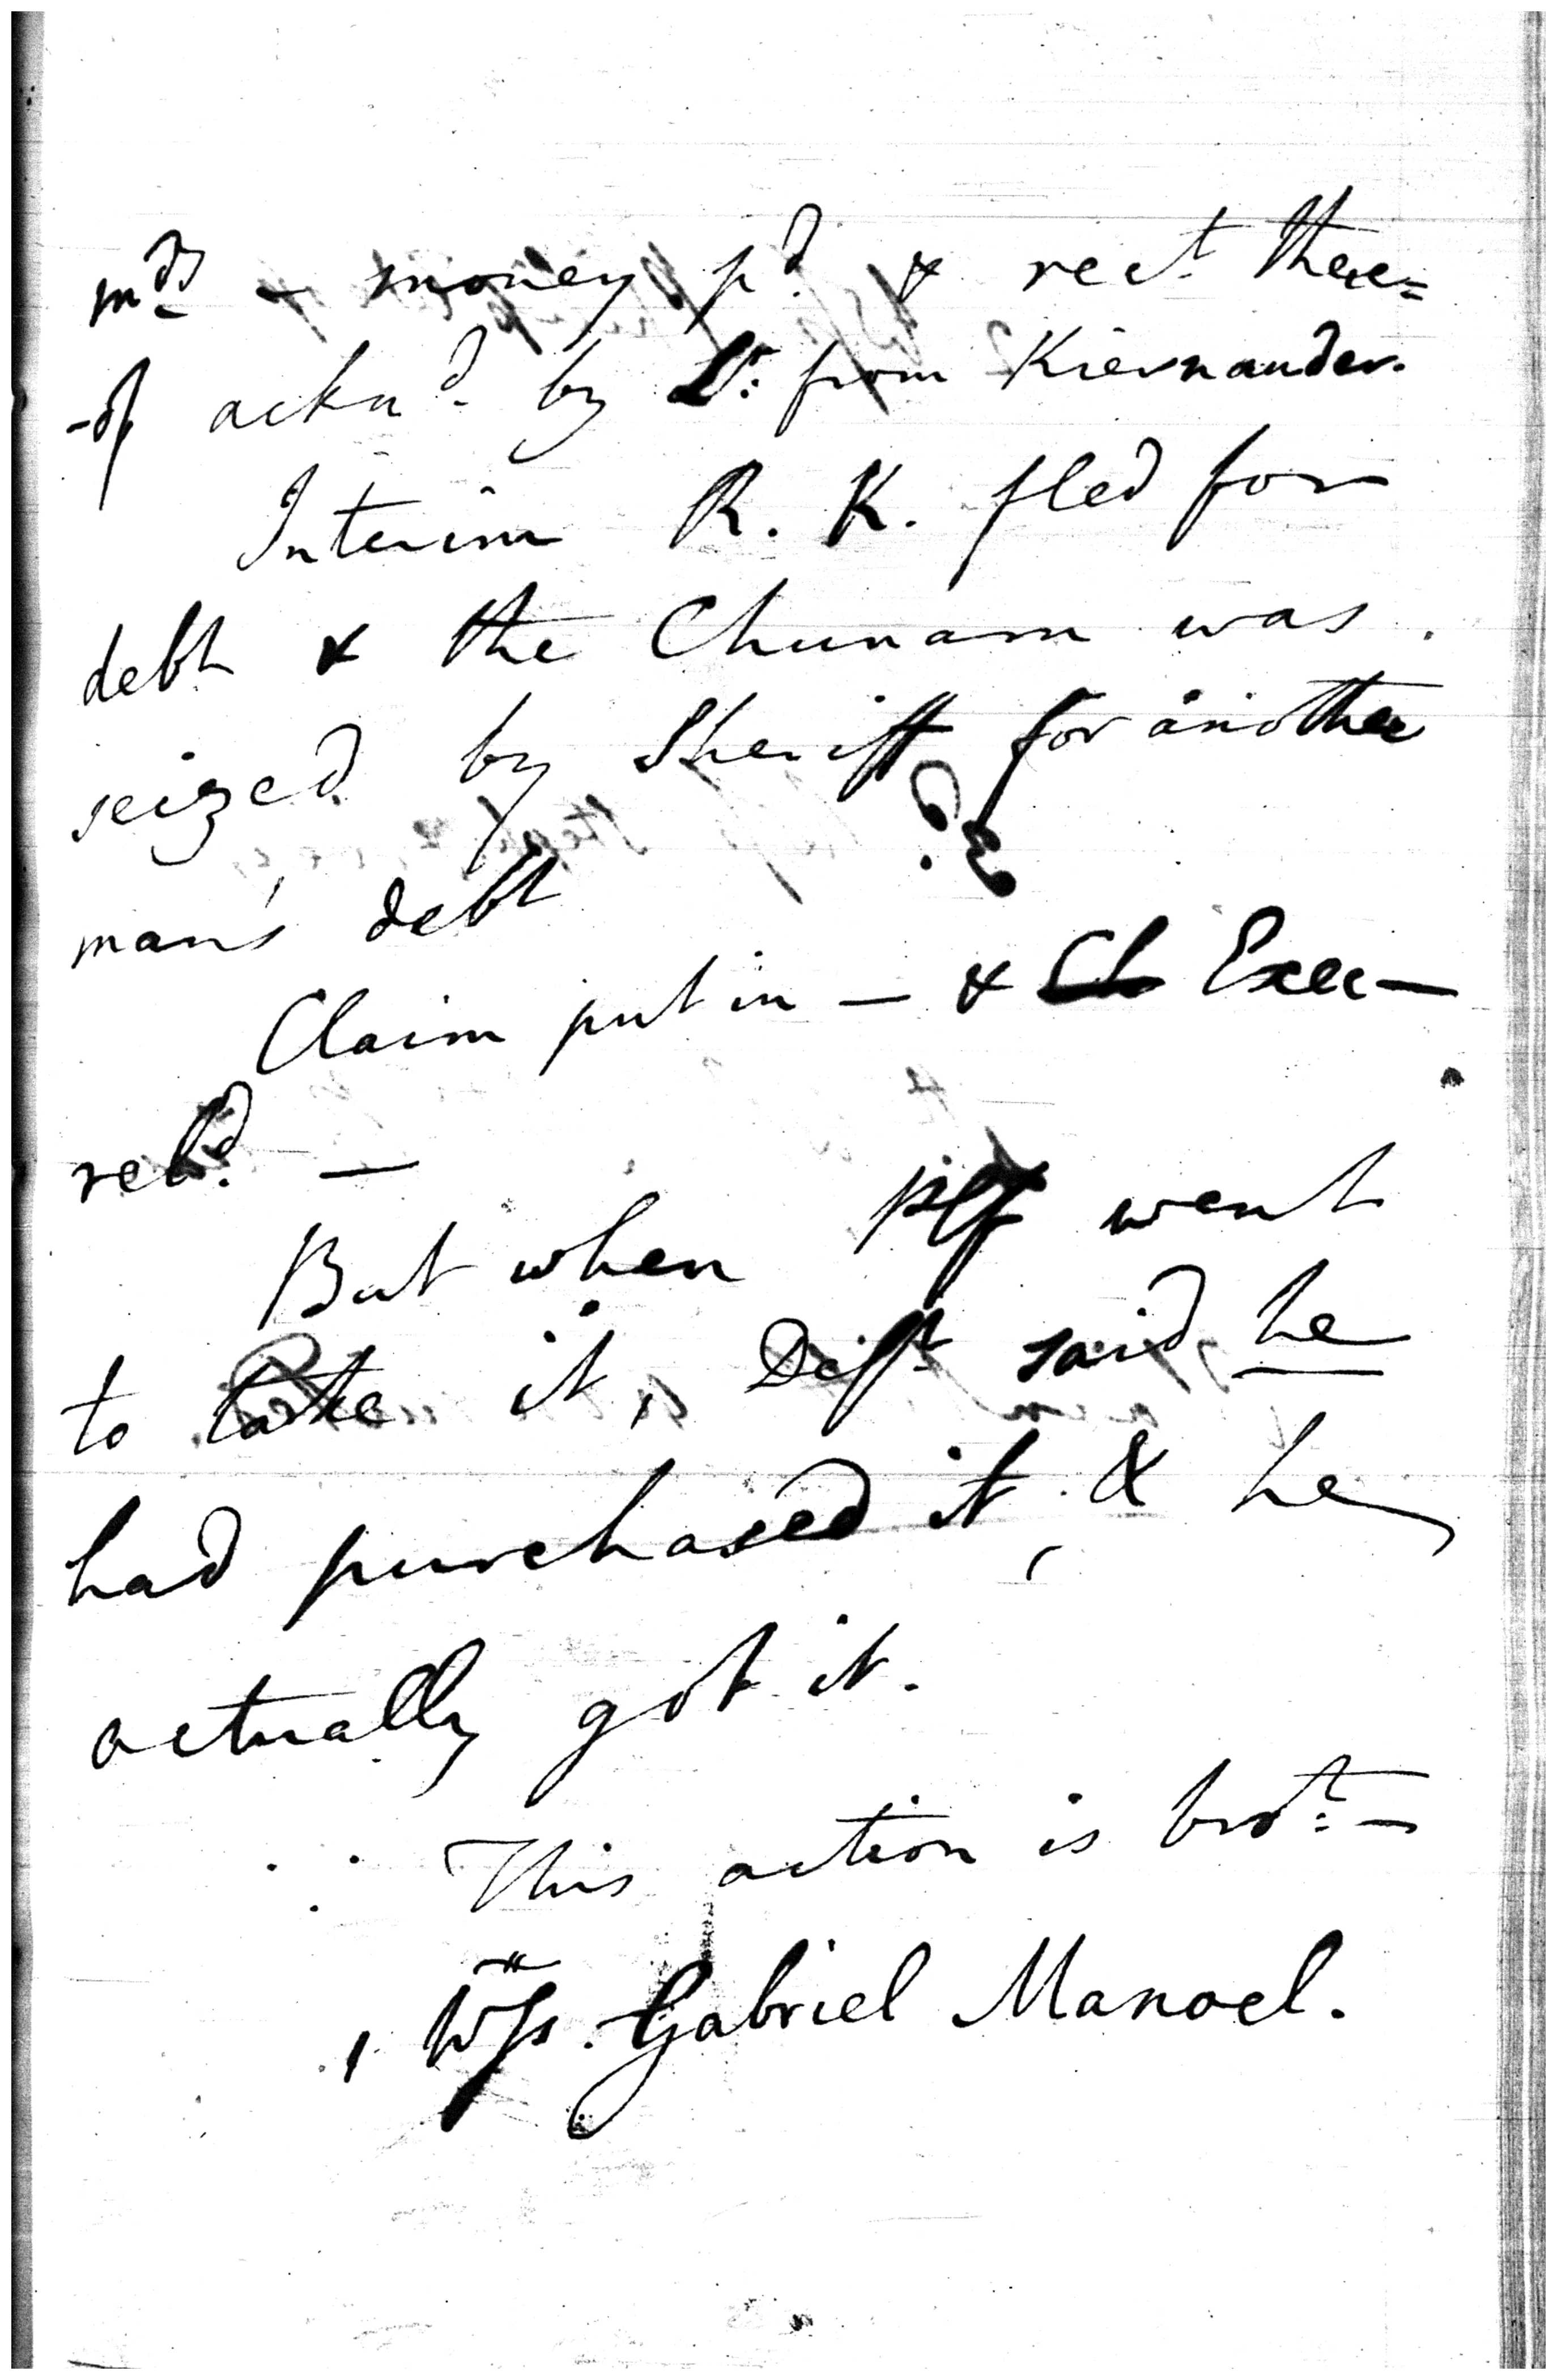 mds – money pd. & rect. there=
-of acknd. by Lr: from Kiernander.
Interim R. K. fled for
debt & the Chunam was
seized by Sheriff for another
man's debt
Claim put in — & Exec —
reld. —
But when Plf went
to take it, Deft said he
had purchased it, & he
actually got it.
∴ This action is brot: —
1 Wss. Gabriel Manoel.